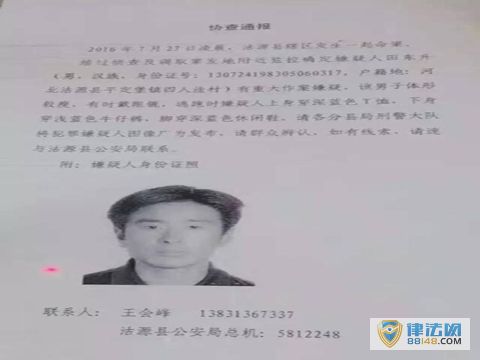 协查通报
2016年7月27日凌晨，沽源县辖区发生一起命案。
经过侦查及调取案发地附近监控确定嫌疑人田东升
（男，汉族，身份证号：130724198305060317，户籍地：河
北沽源县平定堡镇四人洼村）有重大作案嫌疑，该男子体形
较瘦，有时戴眼镜，逃跑时嫌疑人上身穿深蓝色T恤，下身
穿浅蓝色牛仔裤，脚穿深蓝色休闲鞋，请各分县局刑警大队
将犯罪嫌疑人图像广为发布，请群众辨认，如有线索，请速
与沽源县公安局联系。
附：嫌疑人身份证照
联系人：王会峰 13831367337
沽源县公安局总机：5812248
律法网
88148.COM